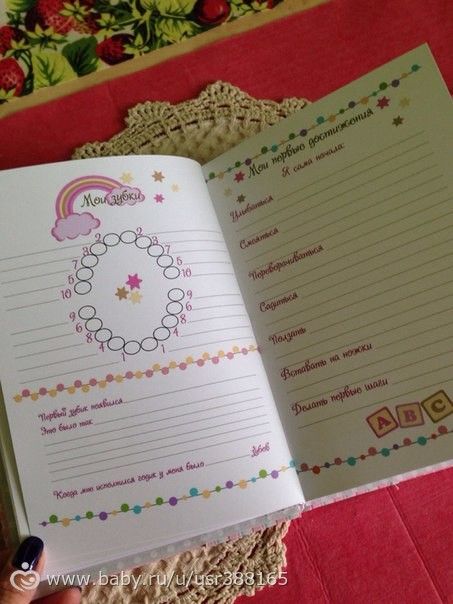 Мои зубки
2 2
3 3
7 7
5 5
10 10
9 9
6 6
8 8
4 4
1 1
Первый зубик появился
Это было так
Когда мне исполнился годик у меня было зубов
Мои первые достижения
Я сама начала:
Улыбаться
Смеяться
Переворачиваться
Садиться
Ползать
Вставать на ножки
Делать первые шаги
A B C
www.baby.ru/u/usr388165